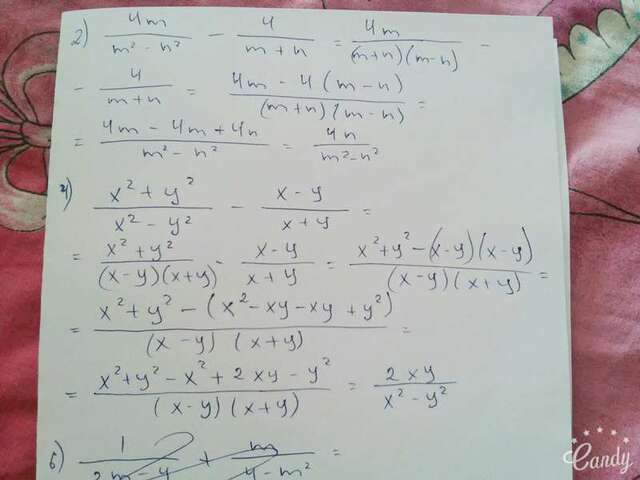 2) 4m/(m² - n²) - 4/(m + n) = 4m/((m+n)(m-n)) -
- 4/(m+n) = (4m - 4(m - n))/((m+n)(m-n)) =
= (4m - 4m + 4n)/(m² - n²) = 4n/(m² - n²)
4) (x² + y²)/(x² - y²) - (x - y)/(x + y) =
= (x² + y²)/((x-y)(x+y)) - (x - y)/(x + y) = (x² + y² - (x-y)(x-y))/((x-y)(x+y)) =
= (x² + y² - (x² - xy - xy + y²))/((x - y)(x+y)) =
= (x² + y² - x² + 2xy - y²)/((x-y)(x+y)) = 2xy/(x² - y²)
6) 1/(2m - 4) + m/(4 - m²) =
Candy